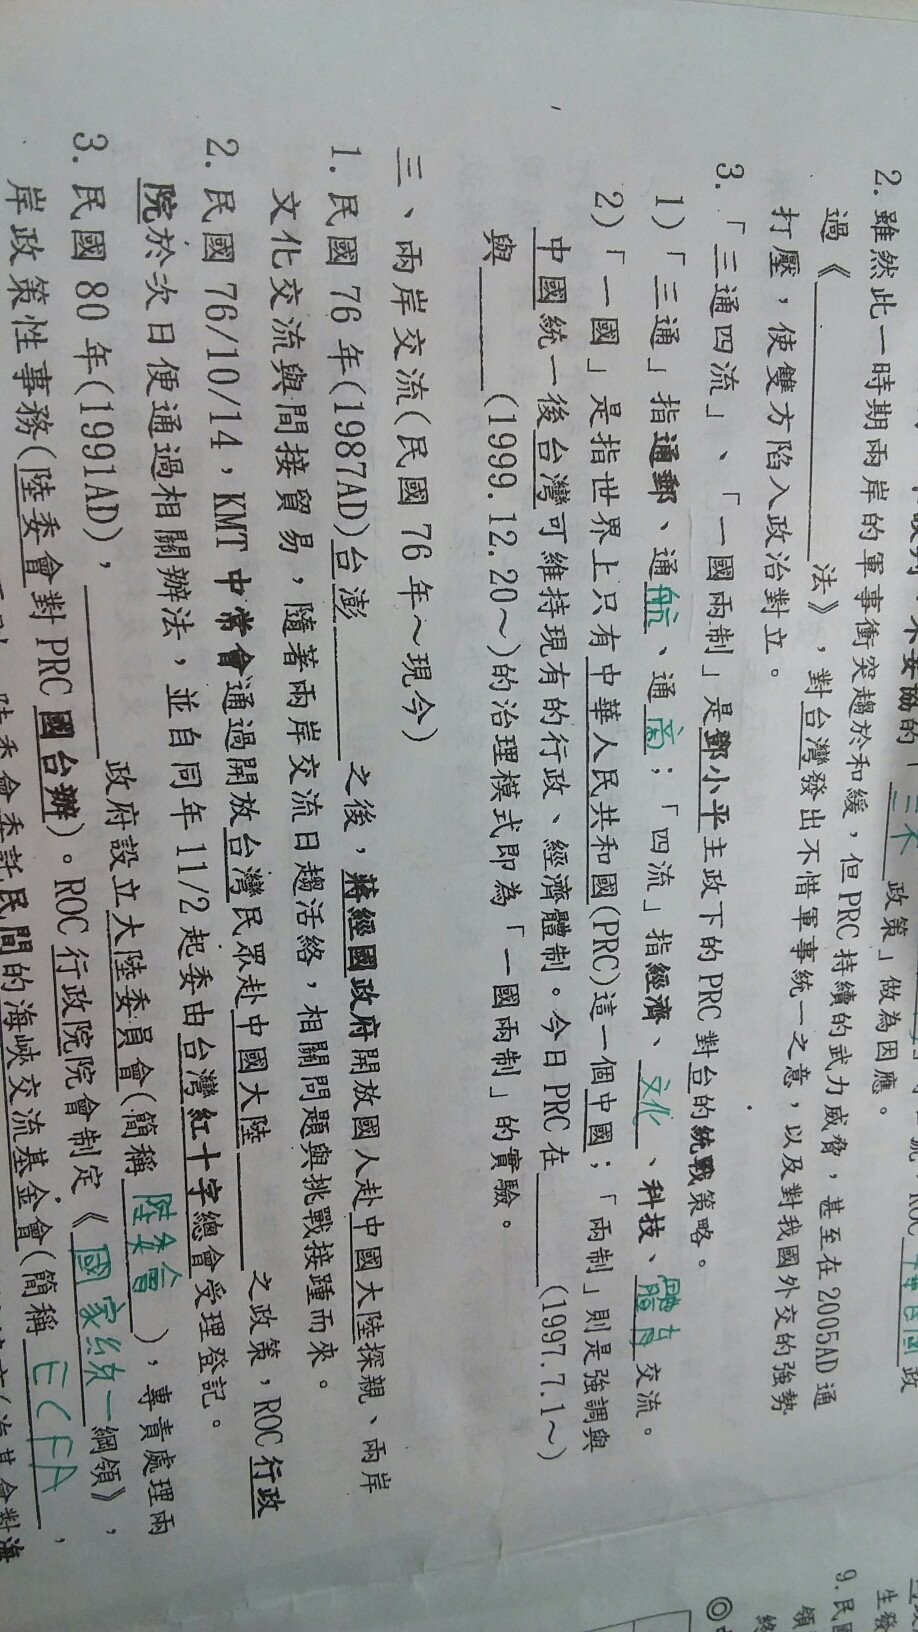 三不 政策」做為因應。
2. 雖然此一時期兩岸的軍事衝突趨於和緩，但PRC持續的武力威脅，甚至在2005AD通
過《____________法》，對台灣發出不惜軍事統一之意，以及對我國外交的強勢
打壓，使雙方陷入政治對立。
3. 「三通四流」、「一國兩制」是鄧小平主政下的PRC對台的統戰策略。
1)「三通」指通郵、通航、通商；「四流」指經濟、文化、科技、體育交流。
2)「一國」是指世界上只有中華人民共和國(PRC)這一個中國；「兩制」則是強調與
中國統一後台灣可維持現有的行政、經濟體制。今日PRC在______(1997.7.1～)
與______(1999.12.20～)的治理模式即為「一國兩制」的實驗。
三、兩岸交流(民國 76 年～現今)
1. 民國 76 年(1987AD)台澎________之後，蔣經國政府開放國人赴中國大陸探親、兩岸
文化交流與間接貿易，隨著兩岸交流日趨活絡，相關問題與挑戰接踵而來。
2. 民國 76/10/14，KMT 中常會通過開放台灣民眾赴中國大陸________之政策，ROC 行政
院於次日便通過相關辦法，並自同年 11/2 起委由台灣紅十字總會受理登記。
3. 民國 80 年(1991AD)，________政府設立大陸委員會(簡稱 陸委會 )，專責處理兩
岸政策性事務(陸委會對 PRC 國台辦)。ROC 行政院院會制定《 國家統一綱領》，
陸委會委託民間的海峽交流基金會(簡稱 ECFA ，
9. 民國
生發
領
終
◎